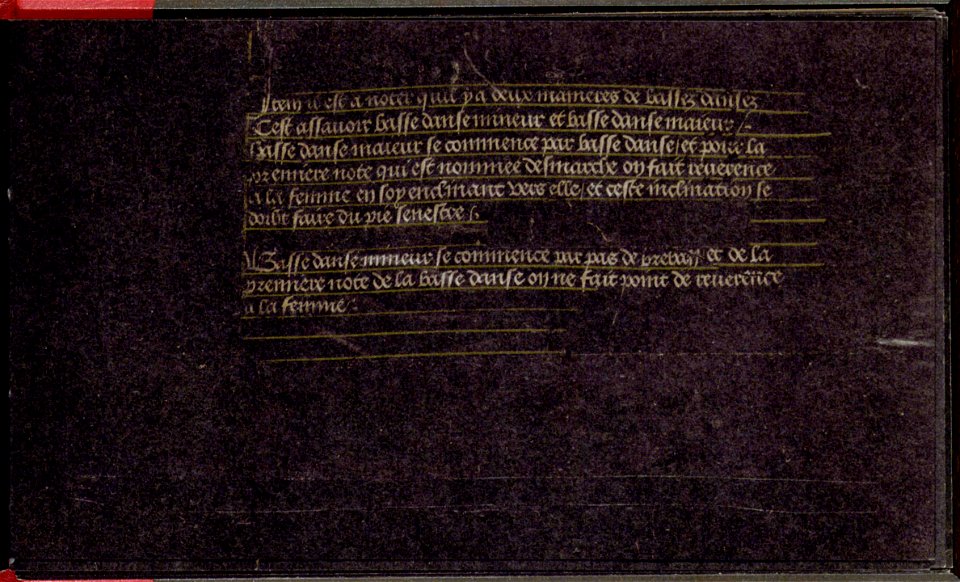 Item il est a noter quil y a deux manieres de basses danses
Cest assavoir basse danse mineur et basse danse maieur /.
Basse danse maieur se commence par basse danse / et pour la
premiere note qui est nommee desmarche on fait reverence
a la femme en soy enclinant vers elle / et ceste inclination se
doibt faire du pie senestre /.
Basse danse mineur se commence par pas de breban / et de la
premiere note de la basse danse on ne fait point de reverence
a la femme /.